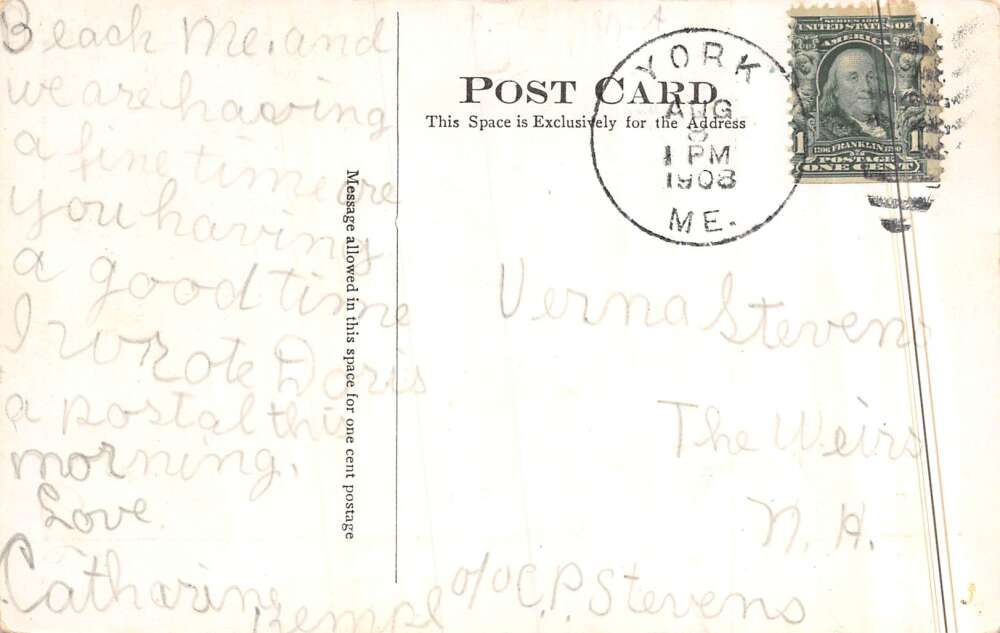 Beach Me. and
we are having
a fine time are
you having
a good time
I wrote Doris
a postal this
morning.
Love
Catharine
Message allowed in this space for one cent postage
POST CARD
This Space is Exclusively for the Address
YORK
AUG
1 PM
1908
ME.
SERIES 1902
UNITED STATES OF
AMERICA
1706 FRANKLIN 1790
1 POSTAGE 1
ONE CENT
Verna Stevens
The Weirs
N. H.
c/o C. P. Stevens